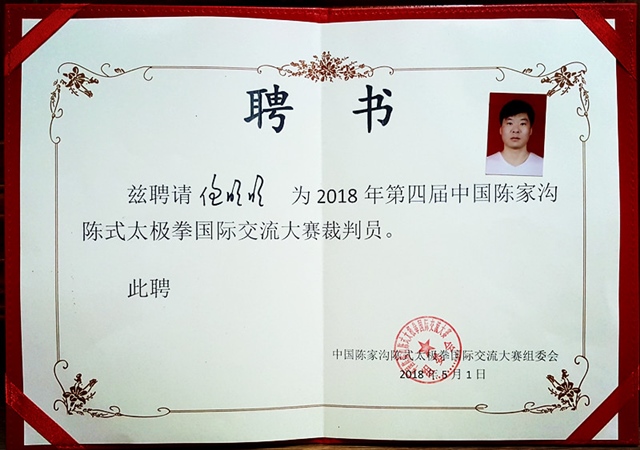 聘书
兹聘请 为2018年第四届中国陈家沟
陈式太极拳国际交流大赛裁判员。
此聘
中国陈家沟陈式太极拳国际交流大赛组委会
2018年5月1日